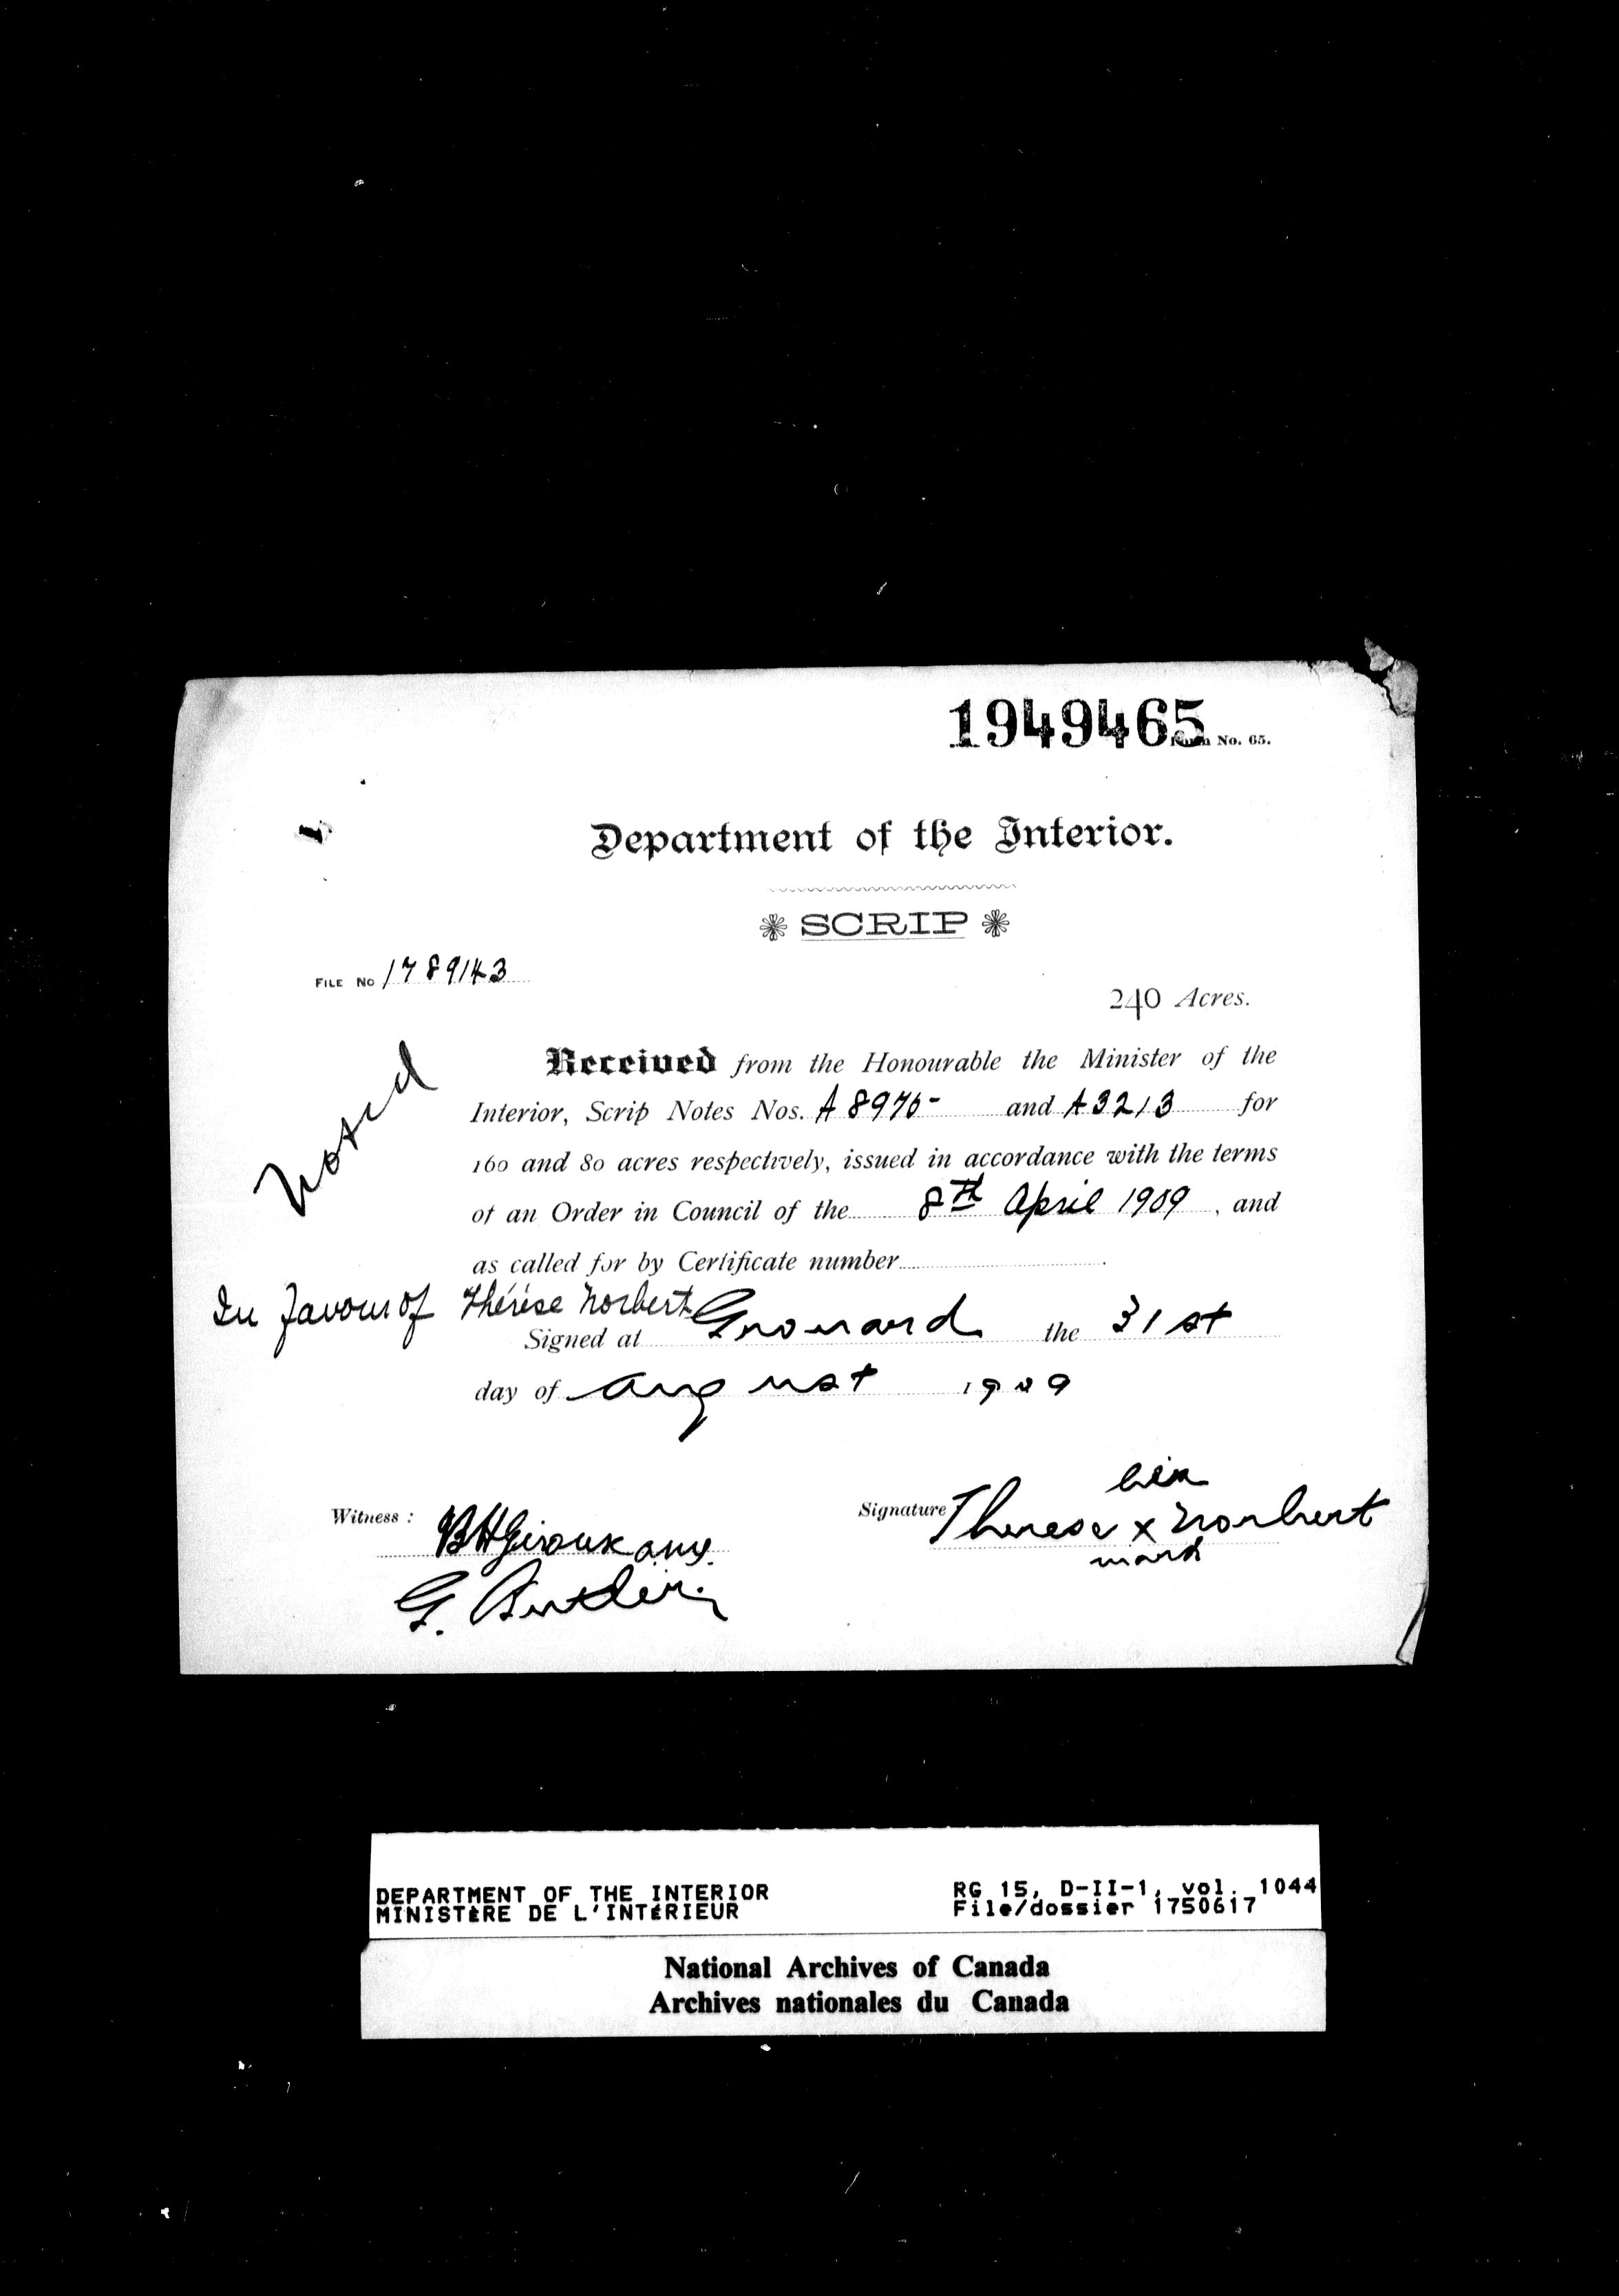 1949465
Form No. 65.
Department of the Interior.
SCRIP
FILE No 1789143
240 Acres.
Noted
Received from the Honourable the Minister of the
Interior, Scrip Notes Nos. A 8975- and A 3213 for
160 and 80 acres respectively, issued in accordance with the terms
of an Order in Council of the 8th April 1909, and
as called for by Certificate number
In favour of Thérèse Norbert
Signed at Grouard the 31st
day of August 1909
Witness :
Signature
her
Therese x Norbert
mark
G. Butler
DEPARTMENT OF THE INTERIOR RG 15, D-II-1, vol. 1044
MINISTÈRE DE L'INTÉRIEUR File/dossier 1750617
National Archives of Canada
Archives nationales du Canada